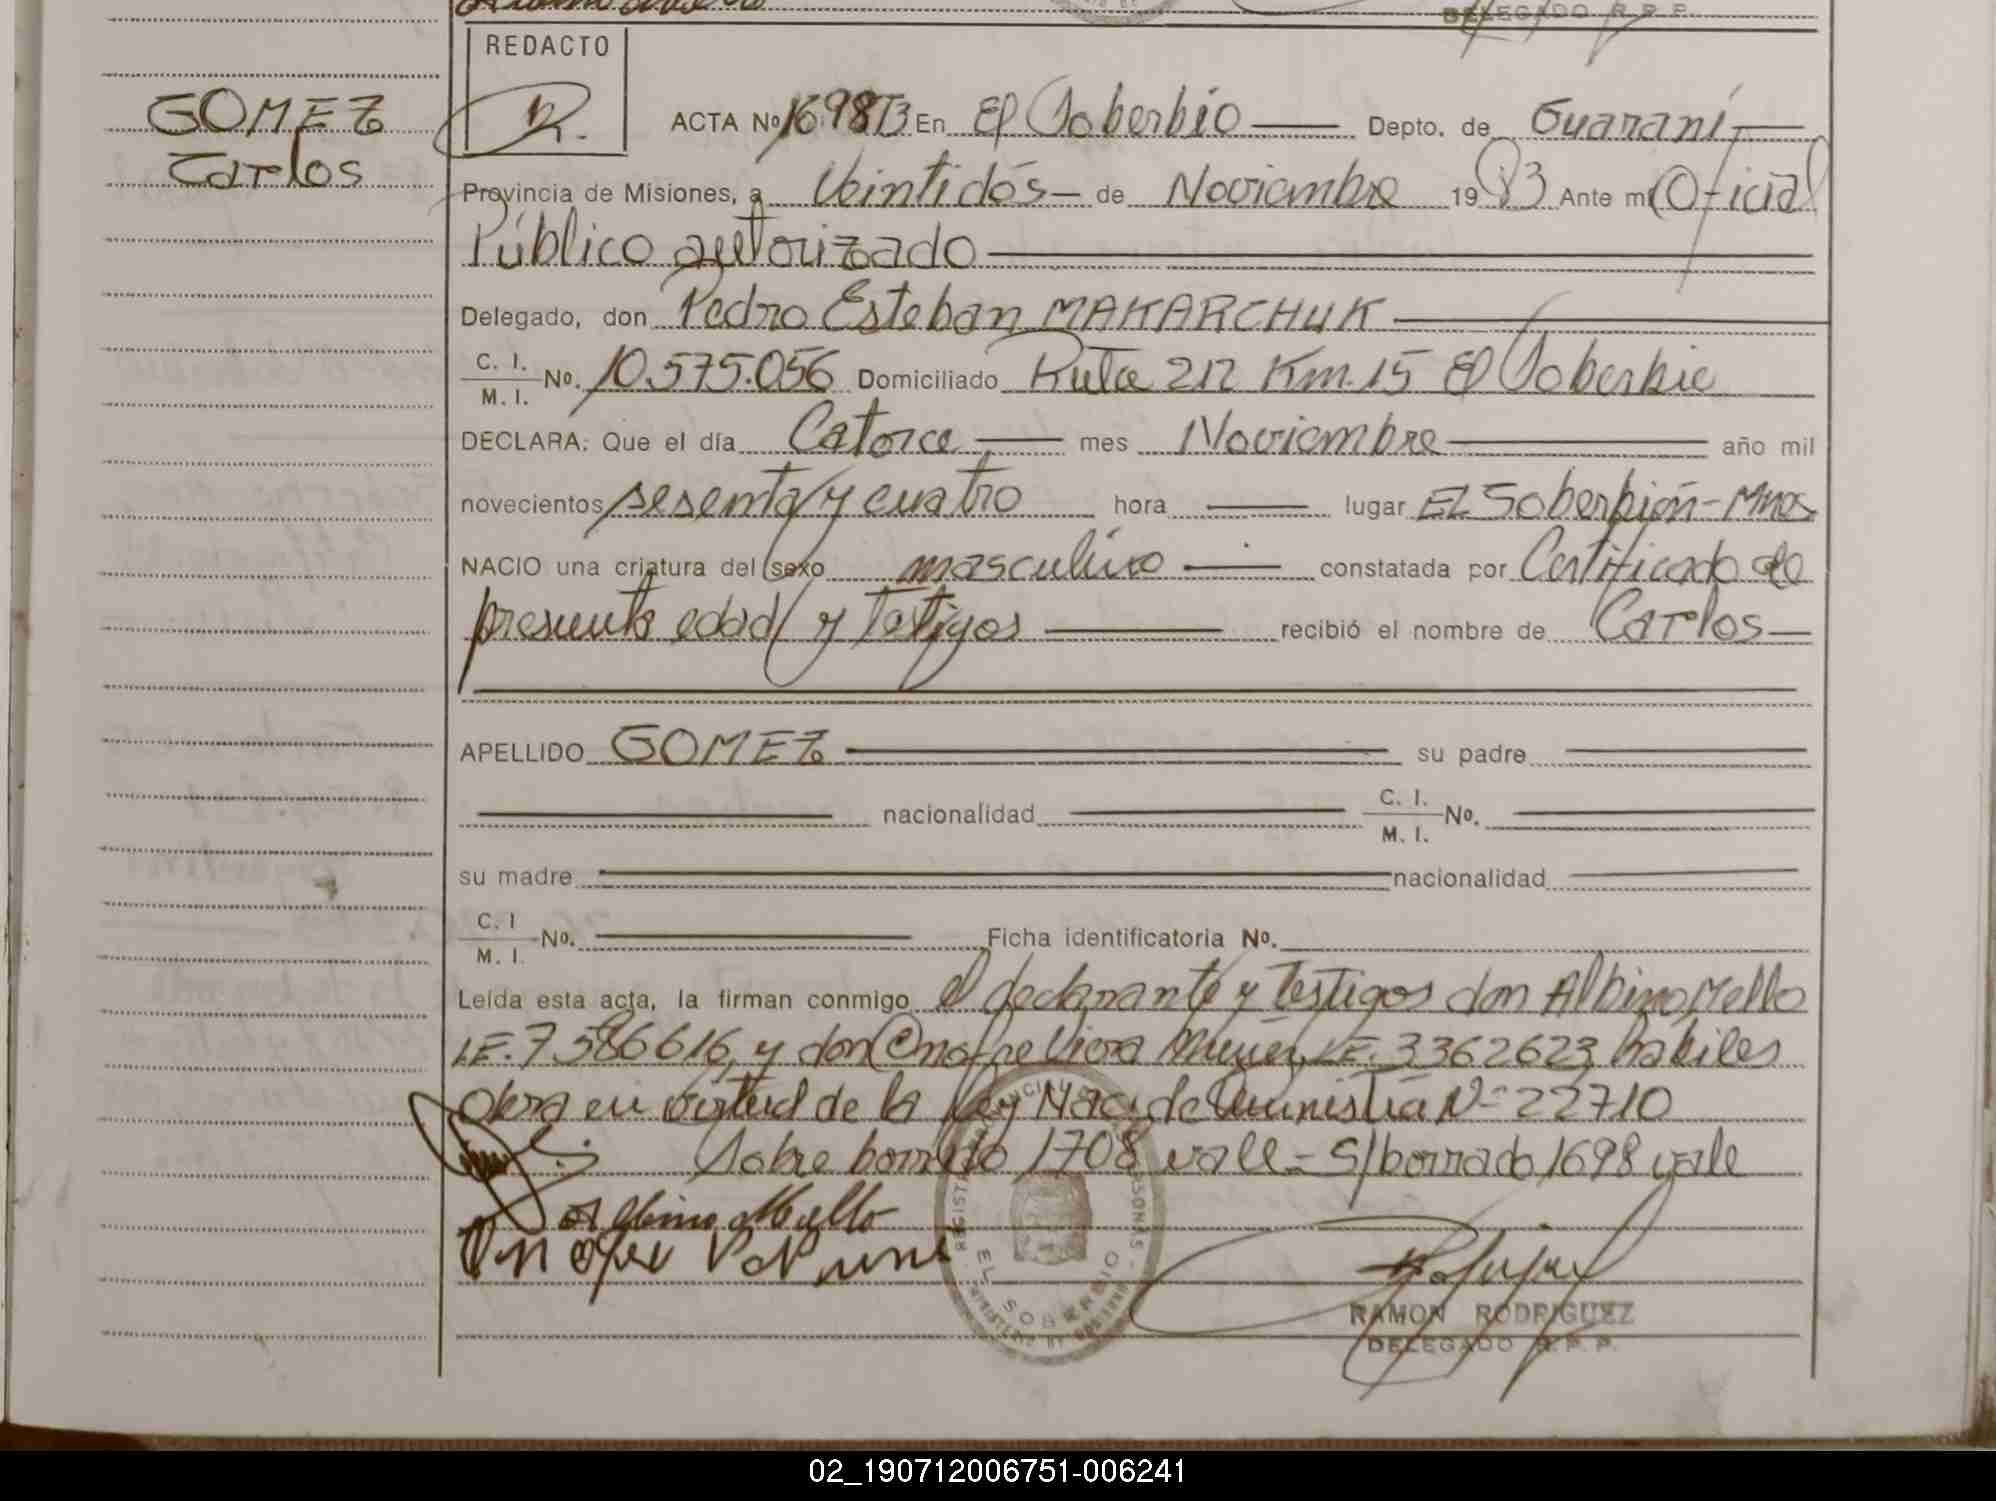 DELEGADO R.P.P.
REDACTO
GOMEZ
Carlos
ACTA Nº 1698T3 En El Soberbio — Depto. de Guaraní —
Provincia de Misiones, a Veintidós — de Noviembre 1983 Ante mí Oficial
Público autorizado
Delegado, don Pedro Esteban MAKARCHUK
C. I.
M. I.
Nº. 10.575.056 Domiciliado Ruta 212 Km. 15 El Soberbio
DECLARA: Que el día Catorce — mes Noviembre — año mil
novecientos sesenta y cuatro hora — lugar EL Soberbio - Mnes
NACIO una criatura del sexo masculino — constatada por Certificado de
presunta edad y Testigos — recibió el nombre de Carlos —
APELLIDO GOMEZ — su padre —
— nacionalidad — C. I. M. I. Nº. —
su madre — nacionalidad —
C. I M. I. Nº. — Ficha identificatoria Nº.
Leída esta acta, la firman conmigo el declarante y Testigos don Albino Mello
I.E. 7.586616, y don Onofre Viera L.E. 3362623 habiles
obra en virtud de la Ley Nac. de Amnistia Nº 22710
Sobre borrado 1708 vale - S/borrado 1698 vale
Albino Mello
EL SOBERBIO
RAMON RODRIGUEZ
DELEGADO R. P. P.
02_190712006751-006241